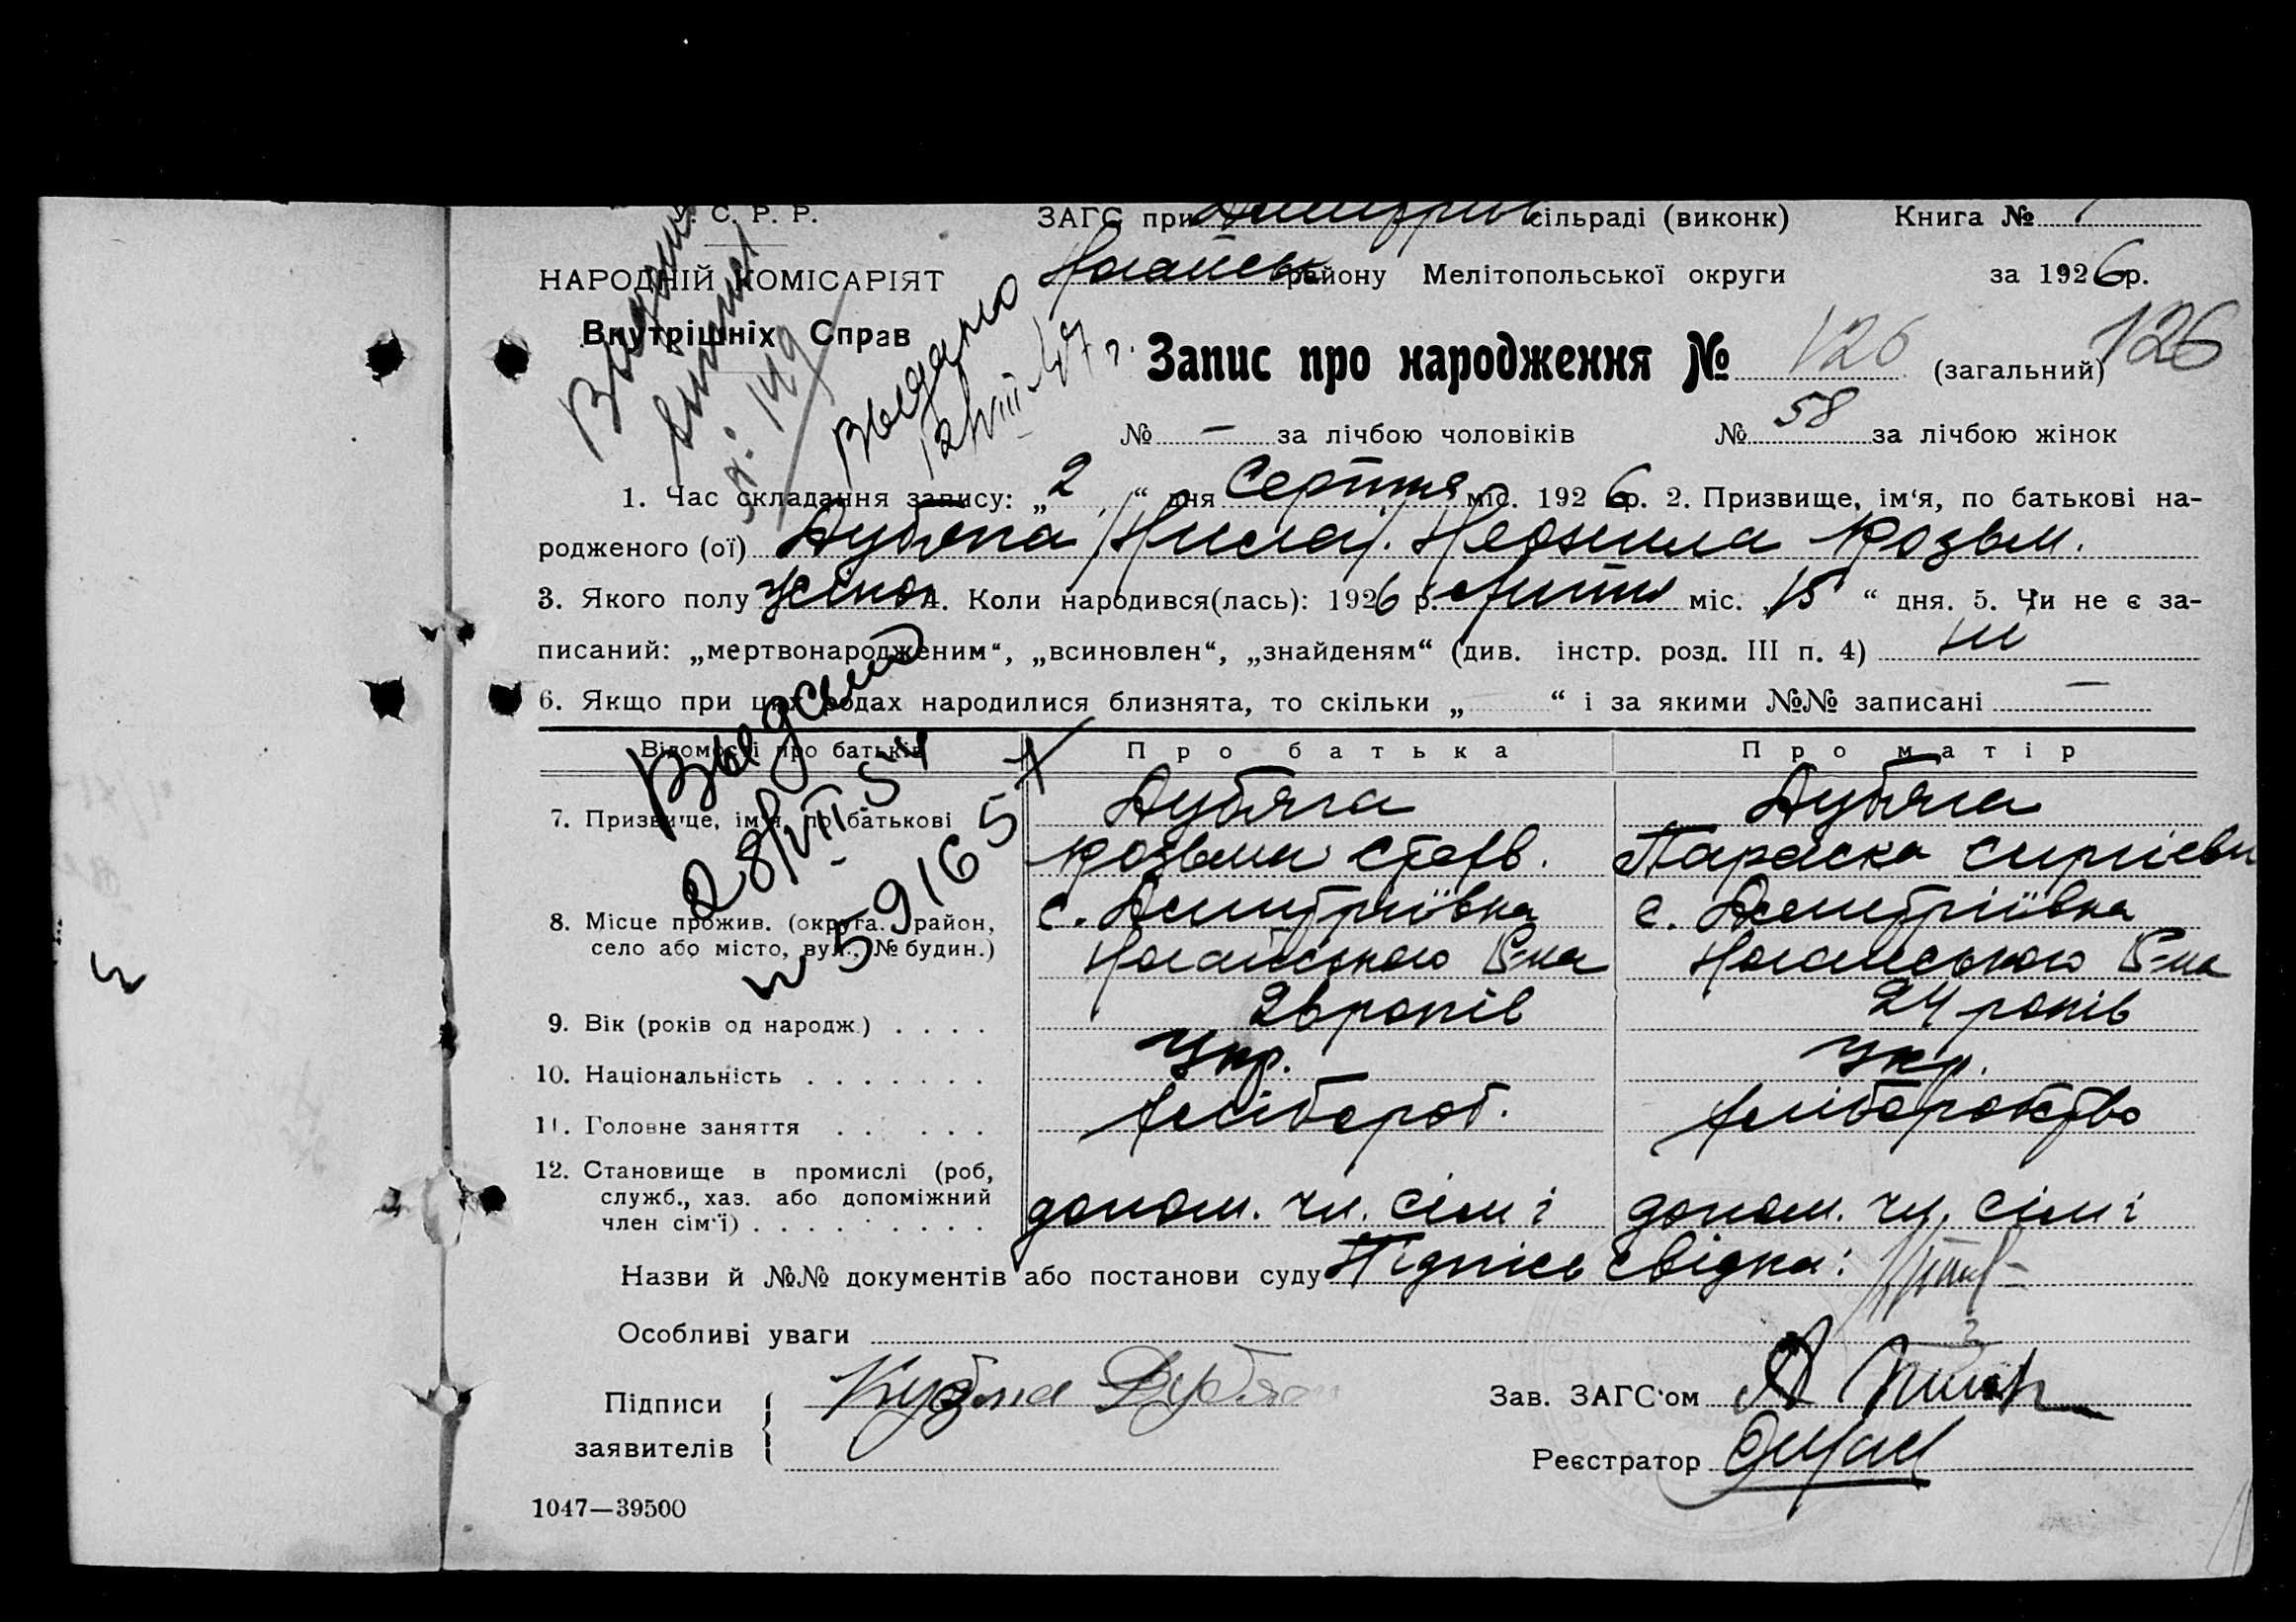 С. Р. Р.
ЗАГС при Дмитрів сільраді (виконк)
Книга №
НАРОДНІЙ КОМІСАРІЯТ
Ногайськ району Мелітопольської округи
за 1926 р.
Внутрішніх Справ
Выдано
12/VIII-47 г.
Запис про народження № 126 (загальний) 126
№ — за лічбою чоловіків № 58 за лічбою жінок
1. Час складання запису: „2“ дня Серпня міс. 1926 р. 2. Призвище, ім‘я, по батькові на-
родженого (ої) Дубяга Козьм.
3. Якого полу жіноч 4. Коли народився(лась): 1926 р. міс. „15“ дня. 5. Чи не є за-
писаний: „мертвонародженим“, „всиновлен“, „знайденям“ (див. інстр. розд. III п. 4) ні
6. Якщо при цих родах народилися близнята, то скільки „ “ і за якими №№ записані —
Відомості про батьків Про батька Про матір
7. Призвище, ім‘я, по батькові Дубяга Дубяга
Козьма Стеф. Параска Сиргієвн
8. Місце прожив. (округа, район, с. Дмитріївка с. Дмитріївка
село або місто, вул., № будин.) Ногайського Р-на Ногайського Р-на
28/VII 54
№ 591657
9. Вік (років од народж.) . . . . 26 років 24 років
10. Національність . . . . . . . Укр. Укр.
11. Головне заняття . . . . . . хлібороб. хліборобство
12. Становище в промислі (роб,
служб., хаз. або допоміжний
член сім‘ї) . . . . . . . . . допом. чл. сімі допом. чл. сімі
Назви й №№ документів або постанови суду Підпись свідка:
Особливі уваги
Підписи
заявителів
Кузма Дубяга
Зав. ЗАГС‘ом
Реєстратор
1047—39500